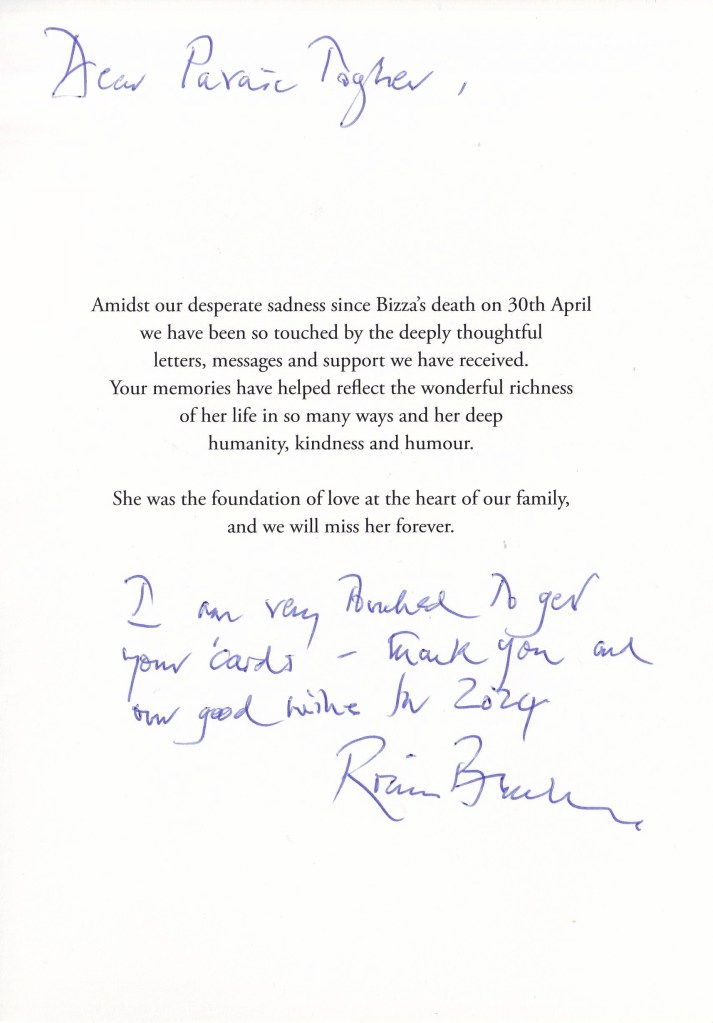 Dear Paraic Togher,
Amidst our desperate sadness since Bizza's death on 30th April
we have been so touched by the deeply thoughtful
letters, messages and support we have received.
Your memories have helped reflect the wonderful richness
of her life in so many ways and her deep
humanity, kindness and humour.
She was the foundation of love at the heart of our family,
and we will miss her forever.
I am very touched to get
your 'cards' - thank you and
our good wishes for 2024